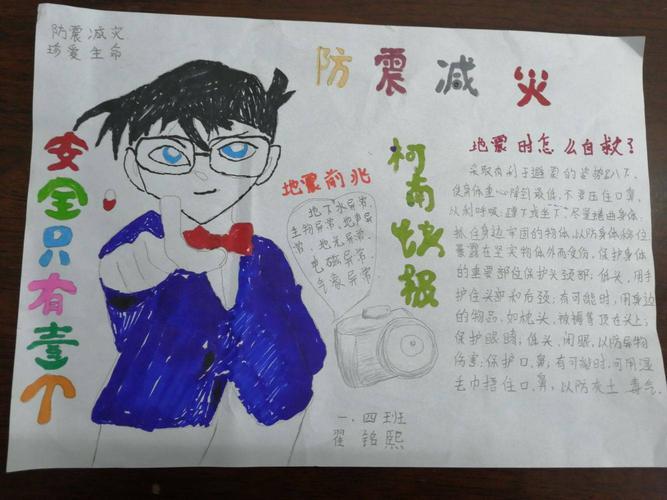 防震减灾
珍爱生命
防震减火
安全只有壹个
柯南快报
地震前兆
地下水异常、
生物异常、地声异
常、地光异常、
电磁异常、
气象异常
地震时怎么自救？
采取有利于避震的姿势趴下,
使身体重心降到最低,不要压住口鼻,
以利呼吸;蹲下或坐下;尽量蜷曲身体,
抓住身边牢固的物体,以防身体移位,
暴露在坚实物体外而受伤,保护身体
的重要部位保护头颈部:低头,用手
护住头部和后颈;有可能时,用身边
的物品,如枕头,被褥等顶在头上;
保护眼睛:低头、闭眼,以防异物
伤害;保护口、鼻:有可能时,可用湿
毛巾捂住口、鼻,以防灰土、毒气.
一、四班
翟铭熙